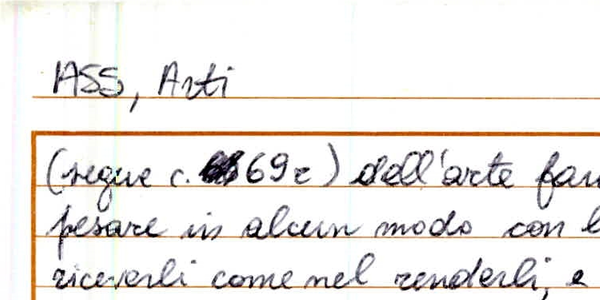 ASS, Arti
(segue c. 69r) dell'arte
pesare in alcun modo con
riceverli come nel renderli, e